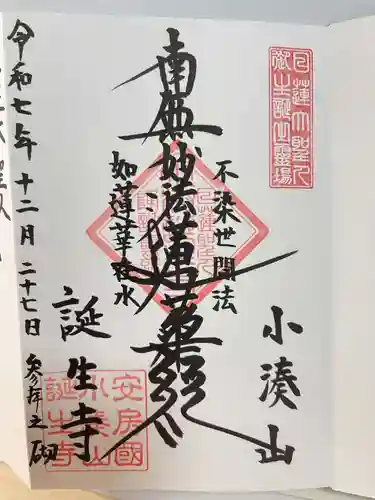 日蓮大聖人
御生誕之霊場
小湊山
不染世間法
南無妙法蓮華経
如蓮華在水
誕生寺
安房國
小湊山
誕生寺
令和七年十二月二十七日参拝之砌